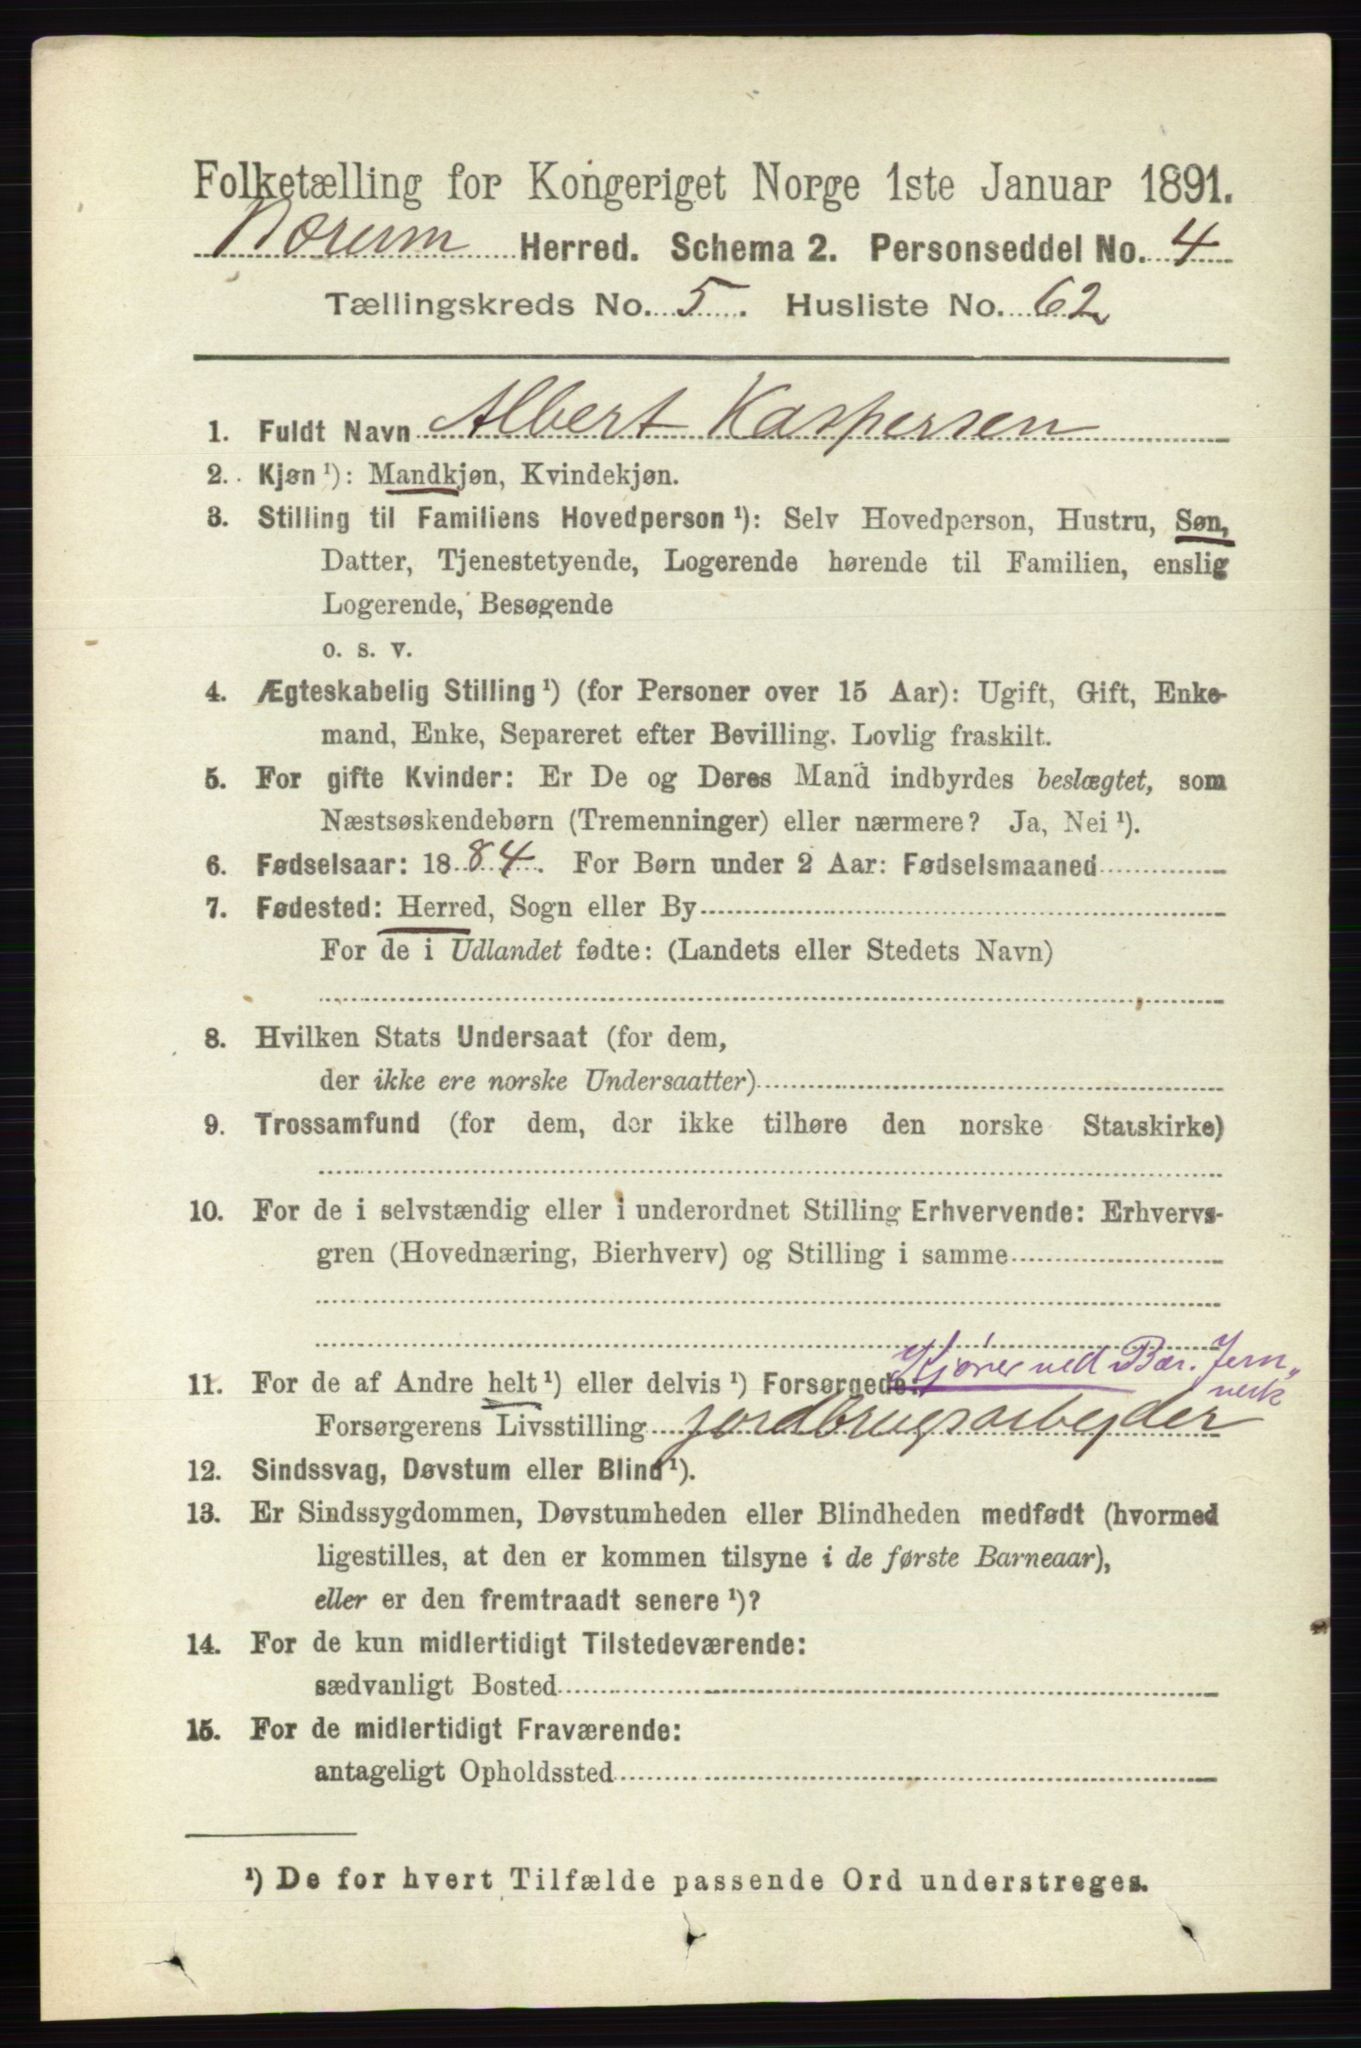 Folketælling for Kongeriget Norge 1ste Januar 1891.
Bærum Herred. Schema 2. Personseddel No. 4
Tællingskreds No. 5. Husliste No. 62
1. Fuldt Navn Albert Kaspersen
2. Kjøn¹): Mandkjøn, Kvindekjøn.
3. Stilling til Familiens Hovedperson¹): Selv Hovedperson, Hustru, Søn,
Datter, Tjenestetyende, Logerende hørende til Familien, enslig
Logerende, Besøgende
o. s. v.
4. Ægteskabelig Stilling¹) (for Personer over 15 Aar): Ugift, Gift, Enke-
mand, Enke, Separeret efter Bevilling. Lovlig fraskilt.
5. For gifte Kvinder: Er De og Deres Mand indbyrdes beslægtet, som
Næstsøskendebørn (Tremenninger) eller nærmere? Ja, Nei¹).
6. Fødselsaar: 1884. For Børn under 2 Aar: Fødselsmaaned
7. Fødested: Herred, Sogn eller By
For de i Udlandet fødte: (Landets eller Stedets Navn)
8. Hvilken Stats Undersaat (for dem,
der ikke ere norske Undersaatter)
9. Trossamfund (for dem, der ikke tilhøre den norske Statskirke)
10. For de i selvstændig eller i underordnet Stilling Erhvervende: Erhvervs-
gren (Hovednæring, Bierhverv) og Stilling i samme
Kjører ved Bær. Jern-
verk
11. For de af Andre helt¹) eller delvis¹) Forsørgede:
Forsørgerens Livsstilling jordbrugsarbejder
12. Sindssvag, Døvstum eller Blind¹).
13. Er Sindssygdommen, Døvstumheden eller Blindheden medfødt (hvormed
ligestilles, at den er kommen tilsyne i de første Barneaar),
eller er den fremtraadt senere¹)?
14. For de kun midlertidigt Tilstedeværende:
sædvanligt Bosted
15. For de midlertidigt Fraværende:
antageligt Opholdssted
¹) De for hvert Tilfælde passende Ord understreges.